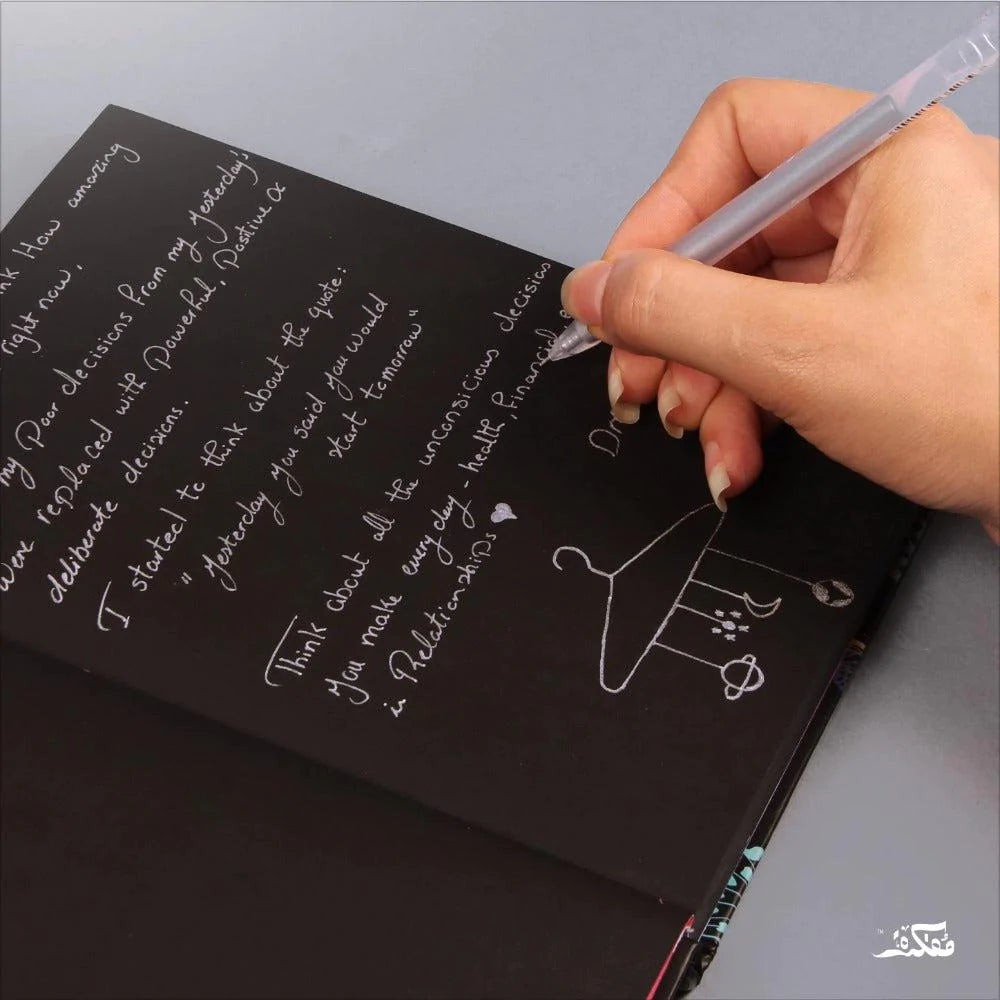 How amazing
right now.
my Poor decisions from my yesterday's
were replaced with Powerful, Positive &
deliberate decisions.
I started to think about the quote:
"Yesterday you said you would
start tomorrow"
Think about all the unconsicious decision
you make everyday - health, Financial
in Relationships
مُفكرة
TM